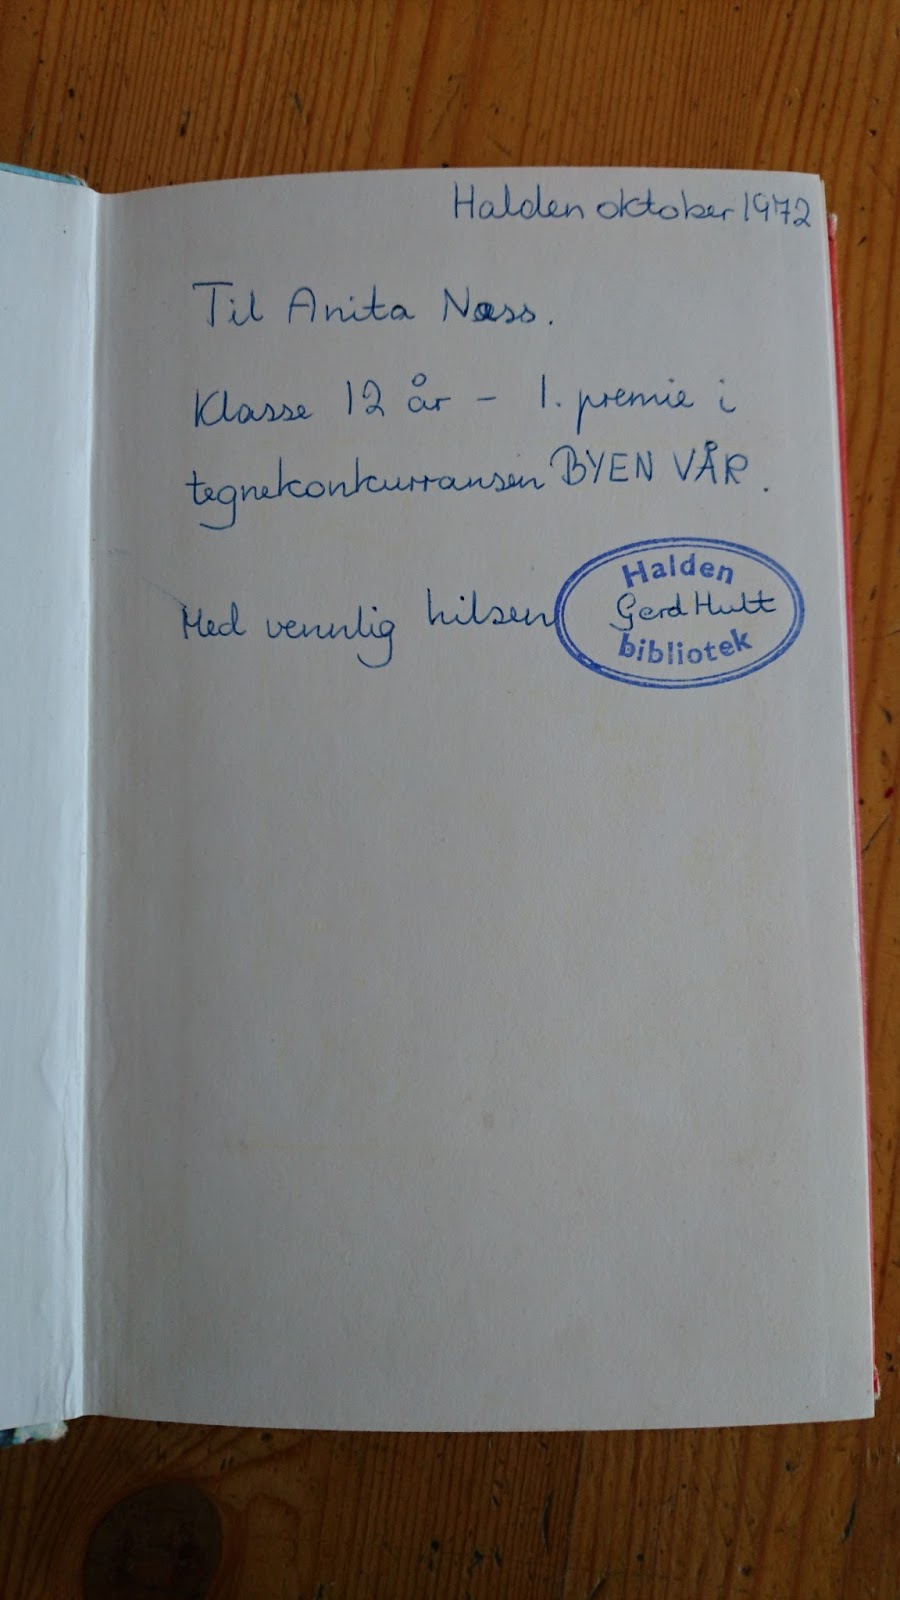 Halden oktober 1972
Til Anita Næss.
Klasse 12 år - 1. premie i
tegnekonkurransen BYEN VÅR.
Med vennlig hilsen
Halden
Gerd Hult
bibliotek